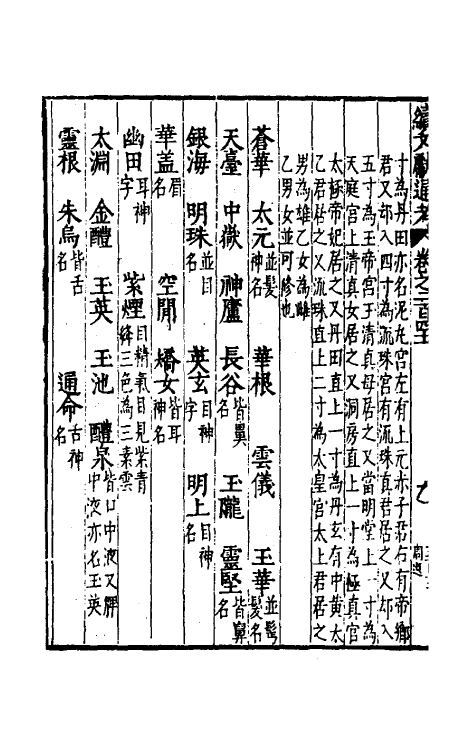 續文獻通考 卷之二百 九
寸為丹田亦名泥丸宮左有上元赤子君右有帝鄉
君又却入四寸為流珠宮有流珠真君居之又却入
五寸為玉帝宮玉清真母居之又當明堂上一寸為
天庭宮上清真女居之又洞房直上一寸為極真宮
太極帝妃居之又丹田直上一寸為丹玄有中黃太
乙君居之又流珠直上二寸為太皇宮太上君居之
男為雄乙女為雌
乙男女並可修也
蒼華 太元並髮神名 華根 雲儀 玉華並鬢髮名
天臺 中嶽 神廬 長谷皆鼻名 玉隴 靈堅皆鼻名
銀海 明珠並目名 英玄目神字 明上目神名
華蓋眉名 空閒 嬌女皆耳名
幽田耳神字 紫煙目精氣目見紫青絳三色為三素雲
太淵 金醴 玉英 玉池 醴泉皆口中液又脾中液亦名玉英
靈根 朱鳥皆舌名 通命舌神名